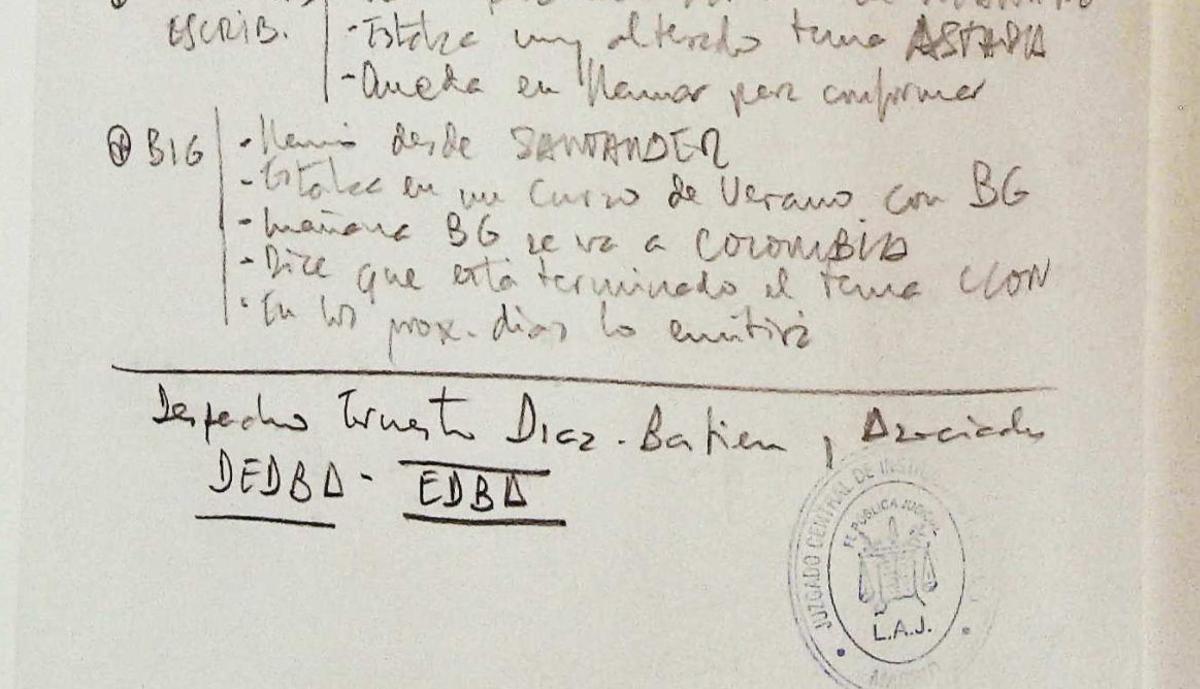 ESCRIB. - Estaba muy alterado tema ASTAPA
- Queda en llamar para confirmar
BIG - Llamó desde SANTANDER
- Estaba en un Curso de Verano con BG
- Mañana BG se va a COLOMBIA
- Dice que está terminado el tema
- En los prox. días lo emitirá
Despacho Ernesto Díaz-Bastien y Asociados
DEDBA - EDBA
JUZGADO CENTRAL DE
FE PÚBLICA JUDICIAL
L.A.J.